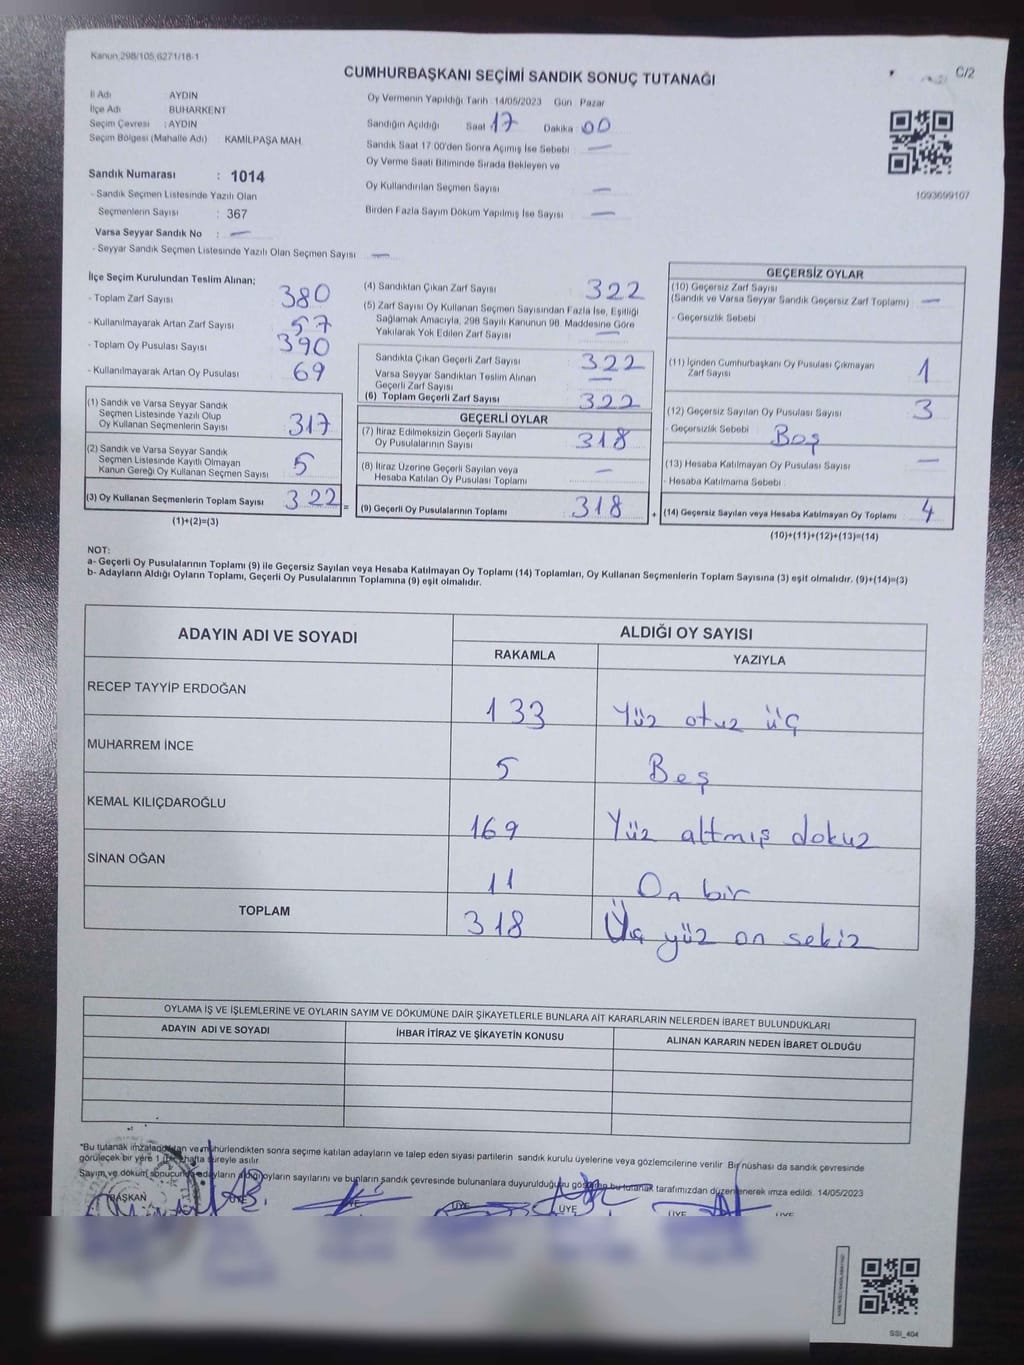 Kanun,298/105,6271/18-1
C/2
CUMHURBAŞKANI SEÇİMİ SANDIK SONUÇ TUTANAĞI
İl Adı AYDIN
İlçe Adı BUHARKENT
Seçim Çevresi : AYDIN
Seçim Bölgesi (Mahalle Adı) KAMİLPAŞA MAH.
Sandık Numarası : 1014
- Sandık Seçmen Listesinde Yazılı Olan
Seçmenlerin Sayısı : 367
Varsa Seyyar Sandık No : —
- Seyyar Sandık Seçmen Listesinde Yazılı Olan Seçmen Sayısı —
Oy Vermenin Yapıldığı Tarih 14/05/2023 Gün : Pazar
Sandığın Açıldığı Saat 17 Dakika 00
Sandık Saat 17:00'den Sonra Açımış İse Sebebi —
Oy Verme Saati Bitiminde Sırada Bekleyen ve
Oy Kullandırılan Seçmen Sayısı —
Birden Fazla Sayım Döküm Yapılmış İse Sayısı —
1093699107
İlçe Seçim Kurulundan Teslim Alınan;
- Toplam Zarf Sayısı 380
- Kullanılmayarak Artan Zarf Sayısı 57
- Toplam Oy Pusulası Sayısı 390
- Kullanılmayarak Artan Oy Pusulası 69
(1) Sandık ve Varsa Seyyar Sandık
Seçmen Listesinde Yazılı Olup
Oy Kullanan Seçmenlerin Sayısı 317
(2) Sandık ve Varsa Seyyar Sandık
Seçmen Listesinde Kayıtlı Olmayan
Kanun Gereği Oy Kullanan Seçmen Sayısı 5
(3) Oy Kullanan Seçmenlerin Toplam Sayısı 322 =
(1)+(2)=(3)
(4) Sandıktan Çıkan Zarf Sayısı 322
(5) Zarf Sayısı Oy Kullanan Seçmen Sayısından Fazla İse, Eşitliği
Sağlamak Amacıyla, 298 Sayılı Kanunun 98. Maddesine Göre
Yakılarak Yok Edilen Zarf Sayısı —
Sandıkta Çıkan Geçerli Zarf Sayısı 322
Varsa Seyyar Sandıktan Teslim Alınan
Geçerli Zarf Sayısı —
(6) Toplam Geçerli Zarf Sayısı 322
GEÇERLİ OYLAR
(7) İtiraz Edilmeksizin Geçerli Sayılan
Oy Pusulalarının Sayısı 318
(8) İtiraz Üzerine Geçerli Sayılan veya
Hesaba Katılan Oy Pusulası Toplamı —
(9) Geçerli Oy Pusulalarının Toplamı 318 +
GEÇERSİZ OYLAR
(10) Geçersiz Zarf Sayısı
(Sandık ve Varsa Seyyar Sandık Geçersiz Zarf Toplamı) —
- Geçersizlik Sebebi
(11) İçinden Cumhurbaşkanı Oy Pusulası Çıkmayan
Zarf Sayısı 1
(12) Geçersiz Sayılan Oy Pusulası Sayısı 3
- Geçersizlik Sebebi Boş
(13) Hesaba Katılmayan Oy Pusulası Sayısı —
- Hesaba Katılmama Sebebi
(14) Geçersiz Sayılan veya Hesaba Katılmayan Oy Toplamı 4
(10)+(11)+(12)+(13)=(14)
NOT:
a- Geçerli Oy Pusulalarının Toplamı (9) ile Geçersiz Sayılan veya Hesaba Katılmayan Oy Toplamı (14) Toplamları, Oy Kullanan Seçmenlerin Toplam Sayısına (3) eşit olmalıdır. (9)+(14)=(3)
b- Adayların Aldığı Oyların Toplamı, Geçerli Oy Pusulalarının Toplamına (9) eşit olmalıdır.
ADAYIN ADI VE SOYADI ALDIĞI OY SAYISI
RAKAMLA YAZIYLA
RECEP TAYYİP ERDOĞAN 133 Yüz otuz üç
MUHARREM İNCE 5 Beş
KEMAL KILIÇDAROĞLU 169 Yüz altmış dokuz
SİNAN OĞAN 11 On bir
TOPLAM 318 Üç yüz on sekiz
OYLAMA İŞ VE İŞLEMLERİNE VE OYLARIN SAYIM VE DÖKÜMÜNE DAİR ŞİKAYETLERLE BUNLARA AİT KARARLARIN NELERDEN İBARET BULUNDUKLARI
ADAYIN ADI VE SOYADI İHBAR İTİRAZ VE ŞİKAYETİN KONUSU ALINAN KARARIN NEDEN İBARET OLDUĞU
*Bu tutanak imzalandıktan ve mühürlendikten sonra seçime katılan adayların ve talep eden siyasi partilerin sandık kurulu üyelerine veya gözlemcilerine verilir. Bir nüshası da sandık çevresinde
görülecek bir yere 1 hafta süreyle asılır.
Sayım ve döküm sonucunda adayların aldığı oyların sayılarını ve bunların sandık çevresinde bulunanlara duyurulduğunu gösteren bu tutanak tarafımızdan düzenlenerek imza edildi. 14/05/2023
BAŞKAN ÜYE ÜYE ÜYE ÜYE ÜYE
SSI_404